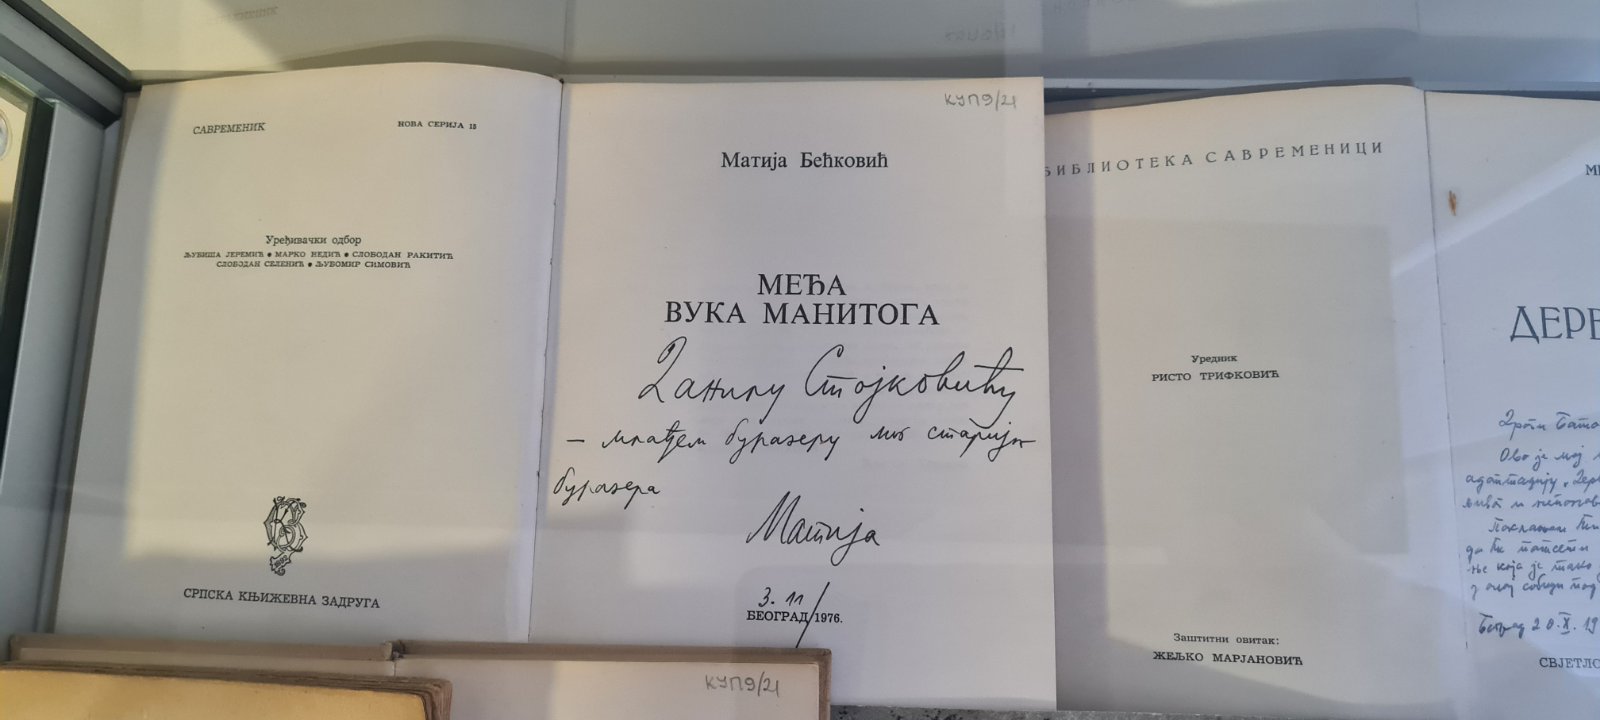 САВРЕМЕНИК
НОВА СЕРИЈА 15
Уређивачки одбор
ЉУБИША ЈЕРЕМИЋ • МАРКО НЕДИЋ • СЛОБОДАН РАКИТИЋ
СЛОБОДАН СЕЛЕНИЋ • ЉУБОМИР СИМОВИЋ
СРПСКА КЊИЖЕВНА ЗАДРУГА
КУП9/21
Матија Бећковић
МЕЂА
ВУКА МАНИТОГА
Данилу Стојковићу
— млађем буразеру
буразера
Матија
3. 11/
БЕОГРАД 1976.
БИБЛИОТЕКА САВРЕМЕНИЦИ
Уредник
РИСТО ТРИФКОВИЋ
Заштитни овитак:
ЖЕЉКО МАРЈАНОВИЋ
ДЕРЕ
Ово је мој
да ти
ње која је тако
СВЈЕТЛО
КУП9/21